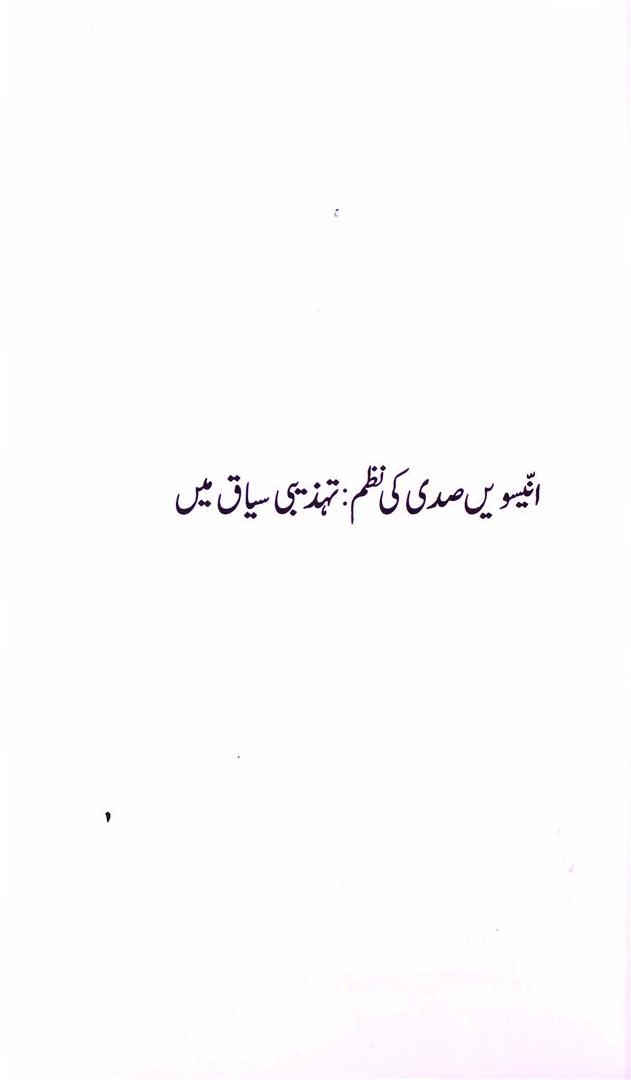 انّیسویں صدی کی نظم: تہذیبی سیاق میں